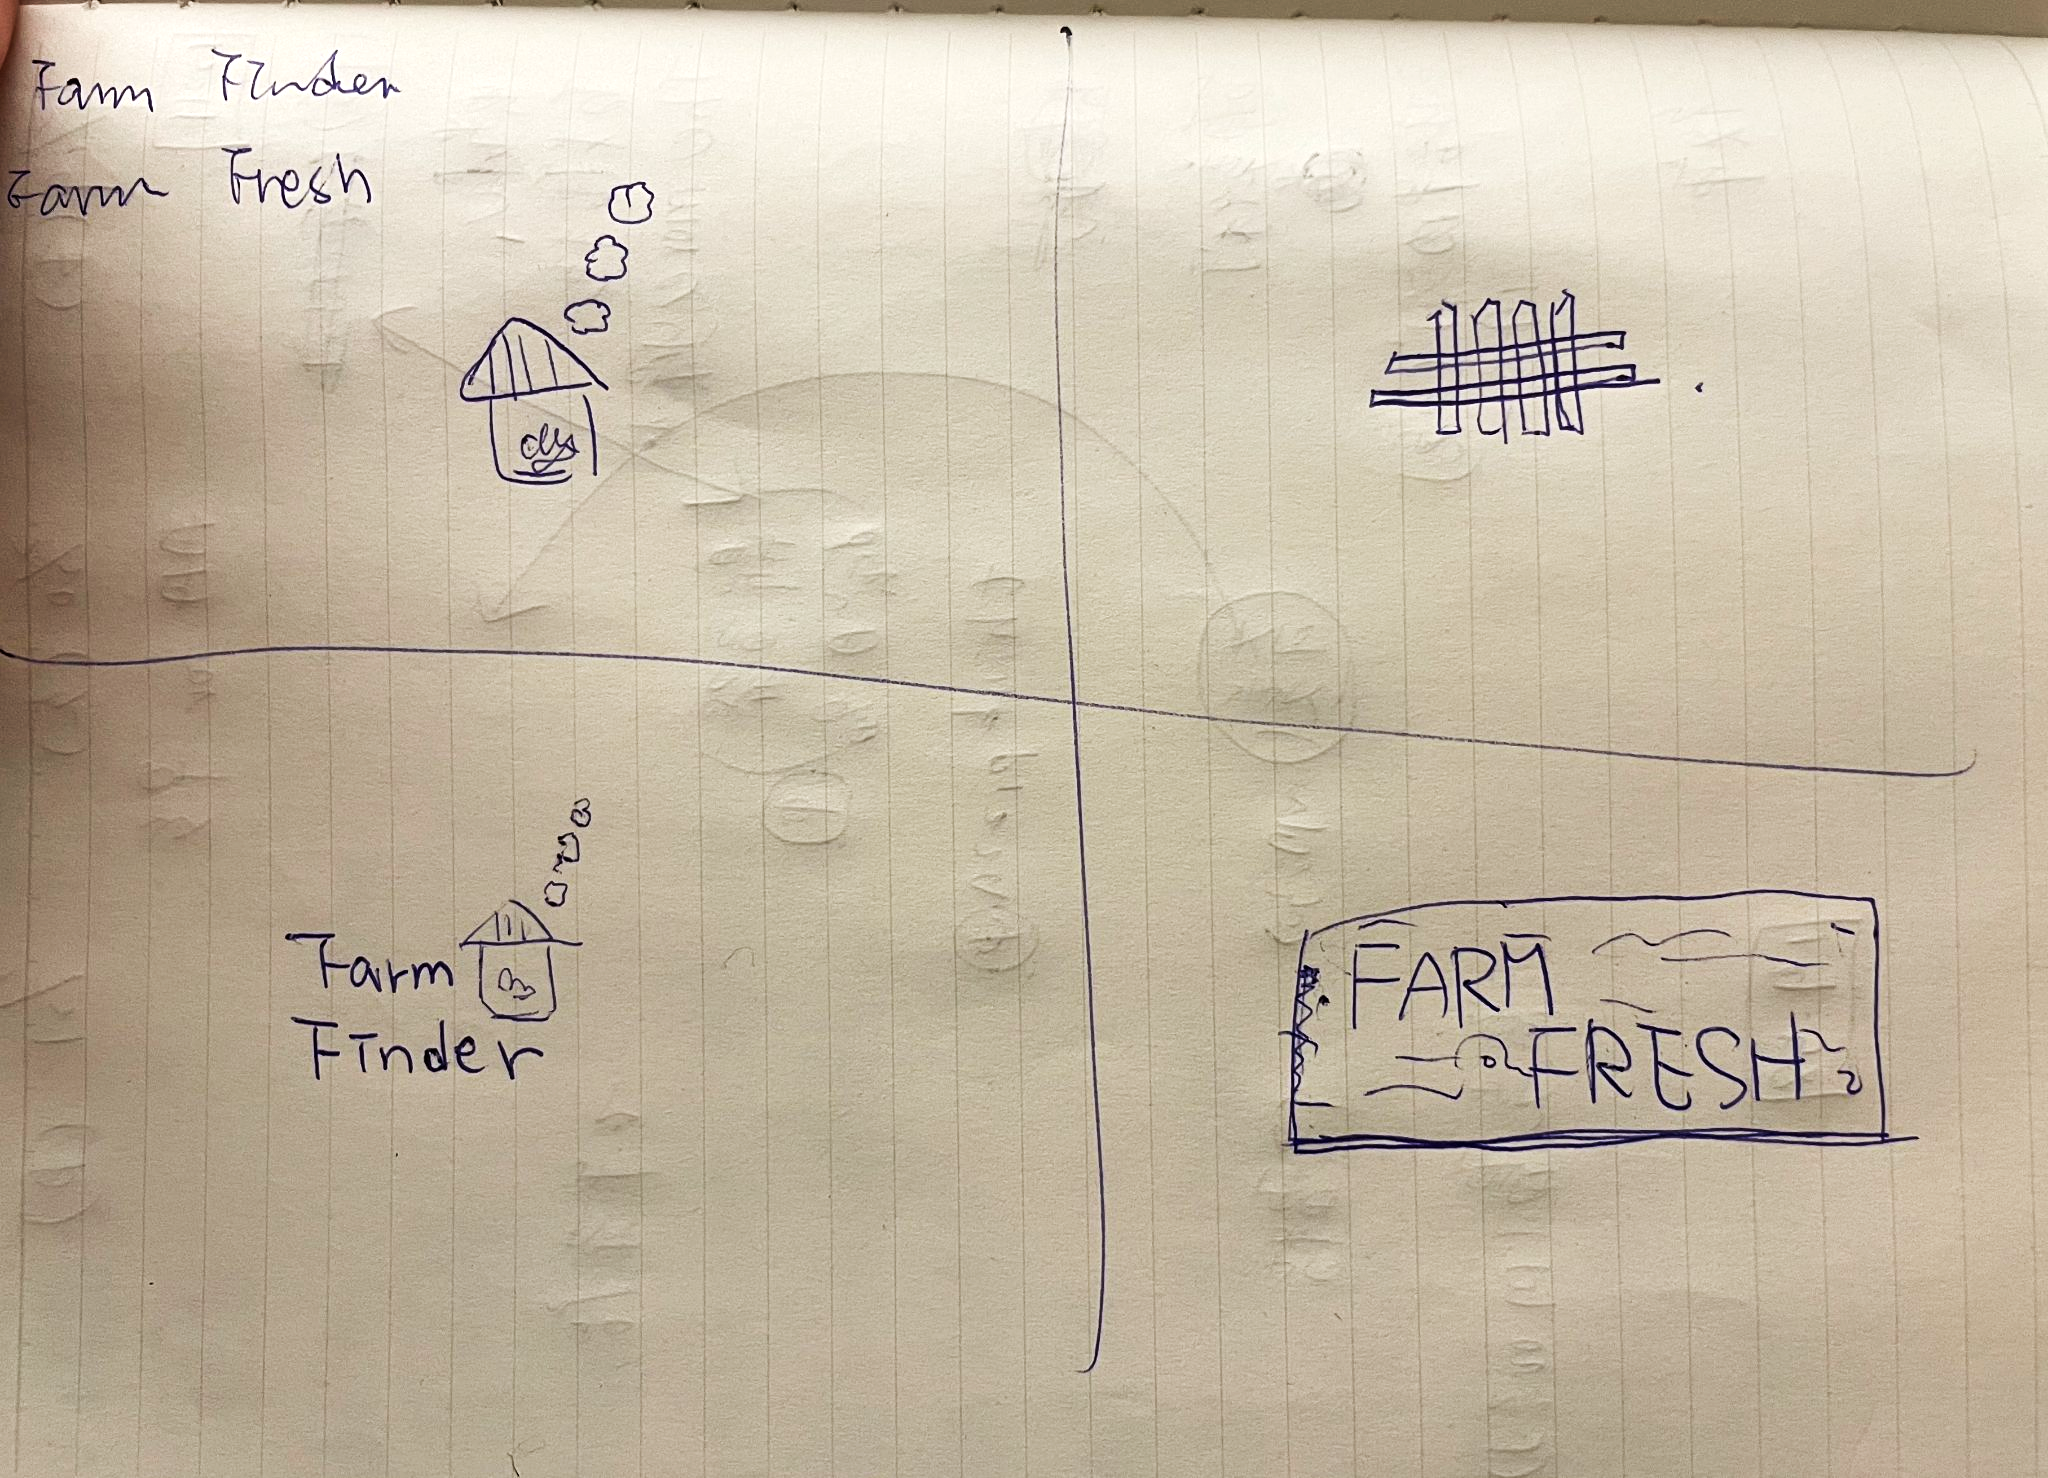 Farm Finder
Farm Fresh
Farm
Finder
FARM
FRESH